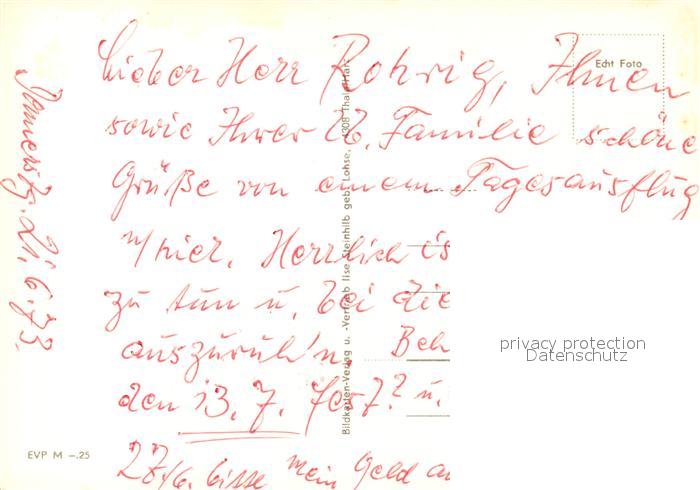 Lieber Herr Rohrig, Ihnen
sowie Ihrer lb. Familie schöne
Grüße von einem Tagesausflug
n/hier. Herrlich is
zu tun u. bei die
auszuruh'n. Beh
den 13.7. fest? u.
27./6. bitte mein Geld an
Donnerstg. 21.6.73.
Echt Foto
Bildkarten-Verlag u. -Vertrieb Ilse Steinhilb geb. Lohse, 4308 Thale/Harz
EVP M -.25
privacy protection
Datenschutz